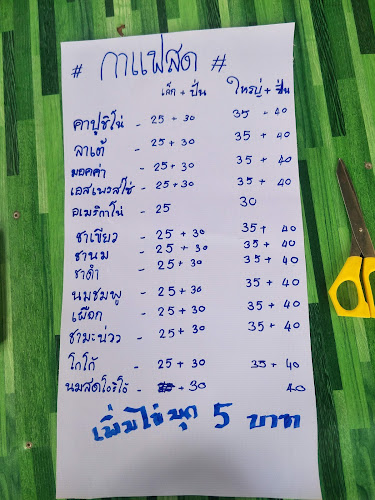 # กาแฟสด #
เล็ก + ปั่น ใหญ่ + ปั่น
คาปูชิโน่ - 25 + 30 35 + 40
ลาเต้ - 25 + 30 35 + 40
มอคค่า - 25 + 30 35 + 40
เอสเพรสโซ่ - 25 + 30 35 + 40
อเมริกาโน่ - 25 30
ชาเขียว - 25 + 30 35 + 40
ชานม - 25 + 30 35 + 40
ชาดำ - 25 + 30 35 + 40
นมชมพู - 25 + 30 35 + 40
เผือก - 25 + 30 35 + 40
ชามะนาว - 25 + 30 35 + 40
โกโก้ - 25 + 30 35 + 40
นมสดโอริโอ้ - 30 40
เพิ่มไข่มุก 5 บาท